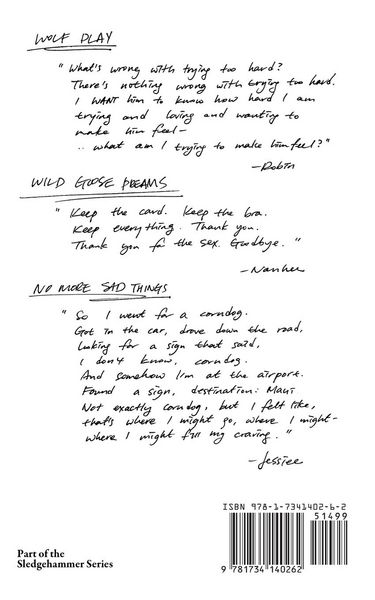 WOLF PLAY
"What's wrong with trying too hard?
There's nothing wrong with trying too hard.
I WANT him to know how hard I am
trying and loving and wanting to
make him feel—
.. what am I trying to make him feel?"
—Robin
WILD GOOSE DREAMS
"Keep the card. Keep the bra.
Keep everything. Thank you.
Thank you for the sex. Goodbye."
—Nanhee
NO MORE SAD THINGS
"So I went for a corndog.
Got in the car, drove down the road,
looking for a sign that said,
I don't know, corndog.
And somehow I'm at the airport.
Found a sign, destination: Maui
Not exactly corndog, but I felt like,
that's where I might go, where I might—
where I might fill my craving."
—Jessiee
ISBN 978-1-7341402-6-2
51499
9 781734 140262
Part of the
Sledgehammer Series